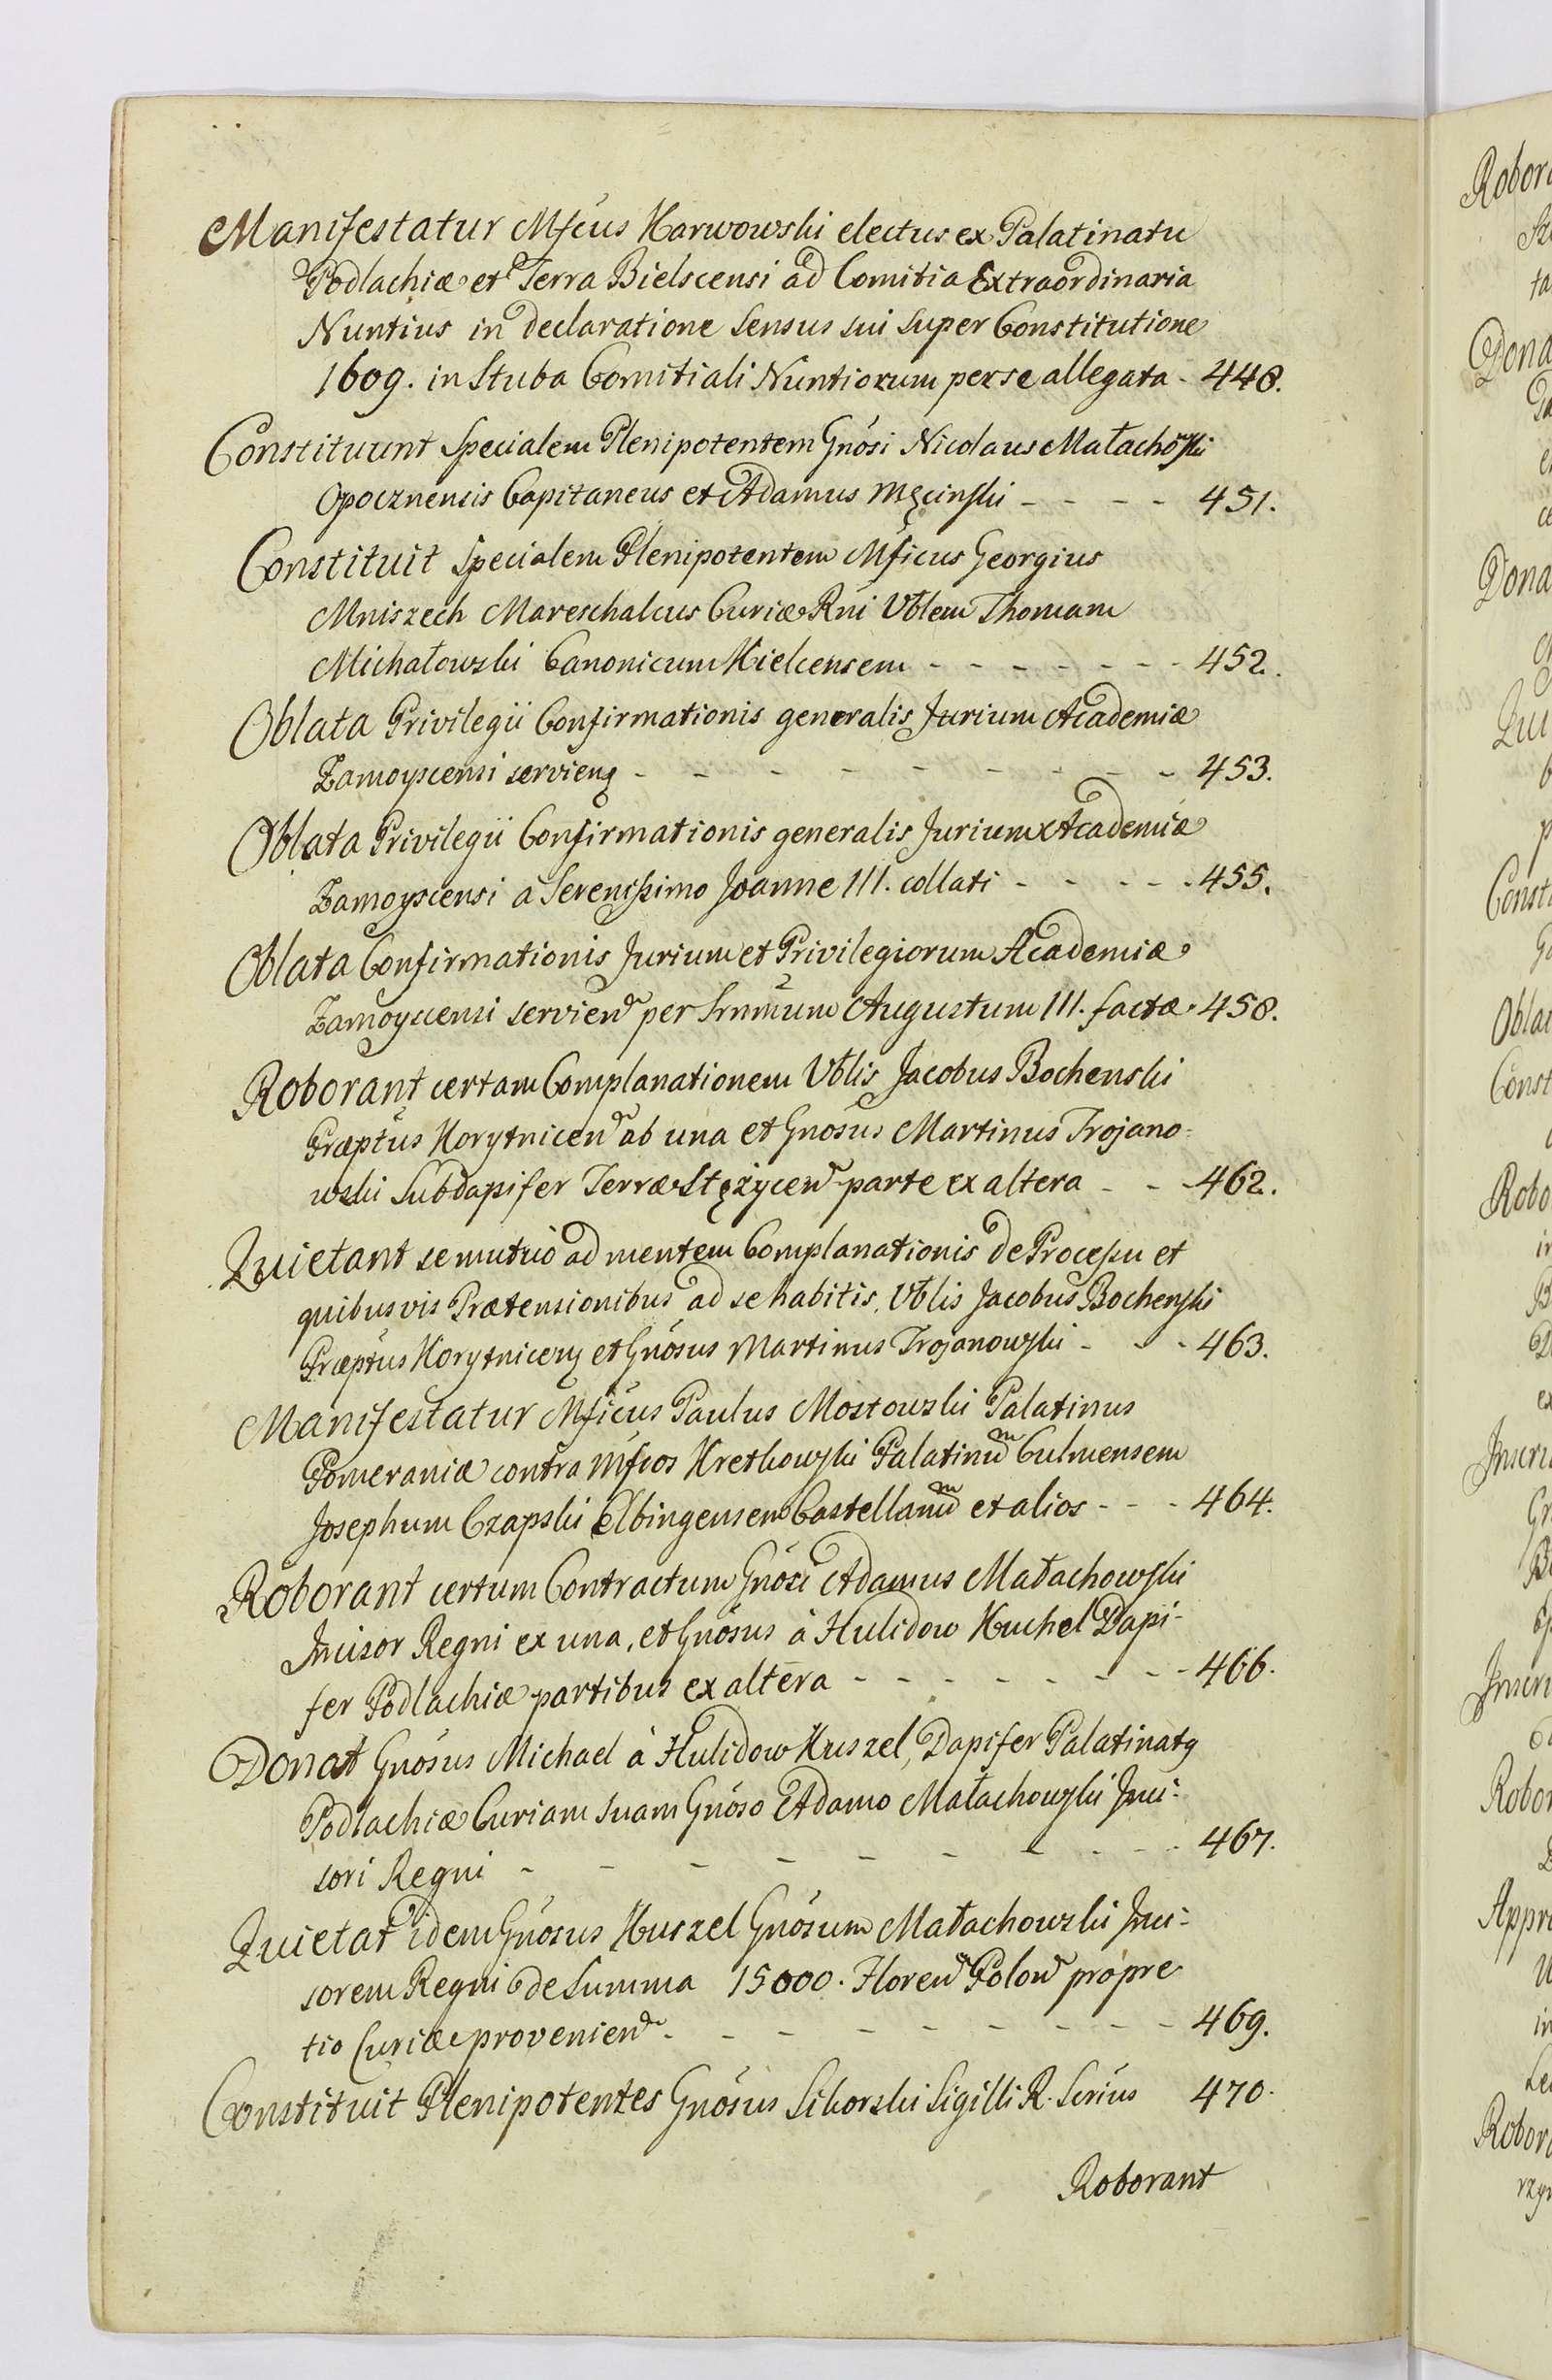 Manifestatur Mfcus Karwowski electus ex Palatinatu
Podlachiæ et Terra Bielscensi ad Comitia Extraordinaria
Nuntius in declaratione sensus sui super Constitutione
1609. in Stuba Comitiali Nuntiorum per se allegata - 448.
Constituunt Specialem Plenipotentem Gnosi Nicolaus Małachoski
Opocznensis Capitaneus et Adamus Męcinski - - - - 451.
Constituit Specialem Plenipotentem Mficus Georgius
Mniszech Mareschalcus Curiæ Rni Vblem Thomam
Michałowski Canonicum Kielcensem - - - - - - - 452.
Oblata Privilegii Confirmationis generalis Jurium Academiæ
Zamoyscensi servien - - - - - - - - 453.
Oblata Privilegii Confirmationis generalis Jurium Academiæ
Zamoyscensi à Serenissimo Joanne III. collati - - - - - 455.
Oblata Confirmationis Jurium et Privilegiorum Academiæ
Zamoyscensi servien per Srnmum Augustum III. factæ - 458.
Roborant certam Complanationem Vblis Jacobus Bochenski
Præptus Korytnicen ab una et Gnosus Martinus Trojano-
wski Subdapifer Terræ Stężycen parte ex altera - - - 462.
Quietant se mutuo ad mentem Complanationis de Processu et
quibusvis Prætensionibus ad se habitis, Vblis Jacobus Bochenski
Præptus Korytnicen et Gnosus Martinus Trojanowski - - - 463.
Manifestatur Mficus Paulus Mostowski Palatinus
Pomeraniæ contra Mfcos Kretkowski Palatinum Culmensem
Josephum Czapski Elbingensem Castellanum et alios - - - 464.
Roborant certum Contractum Gnosi Adamus Małachowski
Incisor Regni ex una, et Gnosus à Hulidow Kuchel Dapi-
fer Podlachiæ partibus ex altera - - - - - - - - 466.
Donat Gnosus Michael à Hulidow Kuszel, Dapifer Palatinatus
Podlachiæ Curiam suam Gnoso Adamo Małachowski Inci-
sori Regni - - - - - - - - - 467.
Quietat idem Gnosus Kuszel Gnosum Małachowski Inci-
sorem Regni de Summa 15000. Floren Polon pro pre
tio Curiæ provenien - - - - - - - - 469.
Constituit Plenipotentes Gnosus Sikorski Sigilli R. Scrius 470.
Roborant